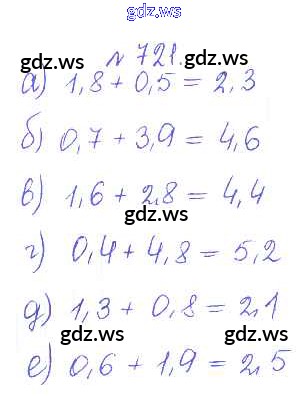 gdz.ws
№ 721.
gdz.ws gdz.ws
а) 1,8 + 0,5 = 2,3
б) 0,7 + 3,9 = 4,6
gdz.ws
в) 1,6 + 2,8 = 4,4
gdz.ws
г) 0,4 + 4,8 = 5,2
gdz.ws
д) 1,3 + 0,8 = 2,1
gdz.ws gdz.ws
е) 0,6 + 1,9 = 2,5
gdz.ws